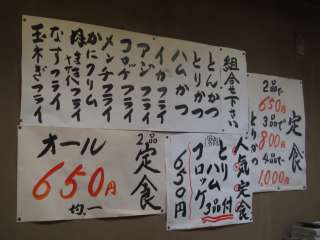 組合せ下さい
とんかつ
とりかつ
ハムかつ
イカフライ
アジフライ
コロッケフライ
メンチフライ
かにクリーム
なすフライ
玉ネギフライ
定食
2品で
650円
3品で
800円
4品で
1,000円
2品定食
オール
650円
均一
人気定食
とりかつ
ハム
コロッケ
3品付
650円